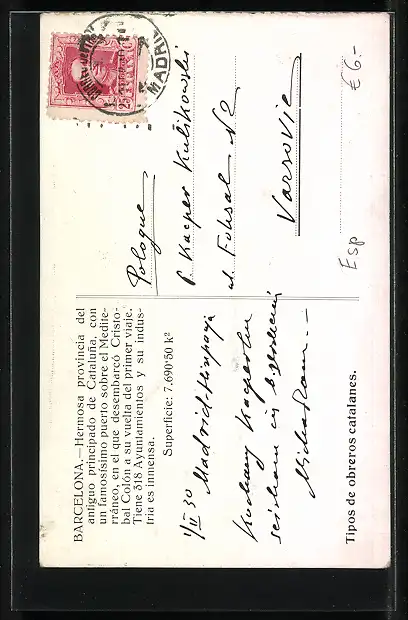 BARCELONA.—Hermosa provincia del
antiguo principado de Cataluña, con
un famosísimo puerto sobre el Medite-
rráneo, en el que desembarcó Cristo-
bal Colón a su vuelta del primer viaje.
Tiene 318 Ayuntamientos y su indus-
tria es inmensa.
Superficie: 7.690'50 k²
1/II 30 Madrid-Hiszpanja
Kochany
Tipos de obreros catalanes.
MADRID
Pologne
P. Kacper Kulikowski
ul. Foksal
Varsovie
Esp
€6.-